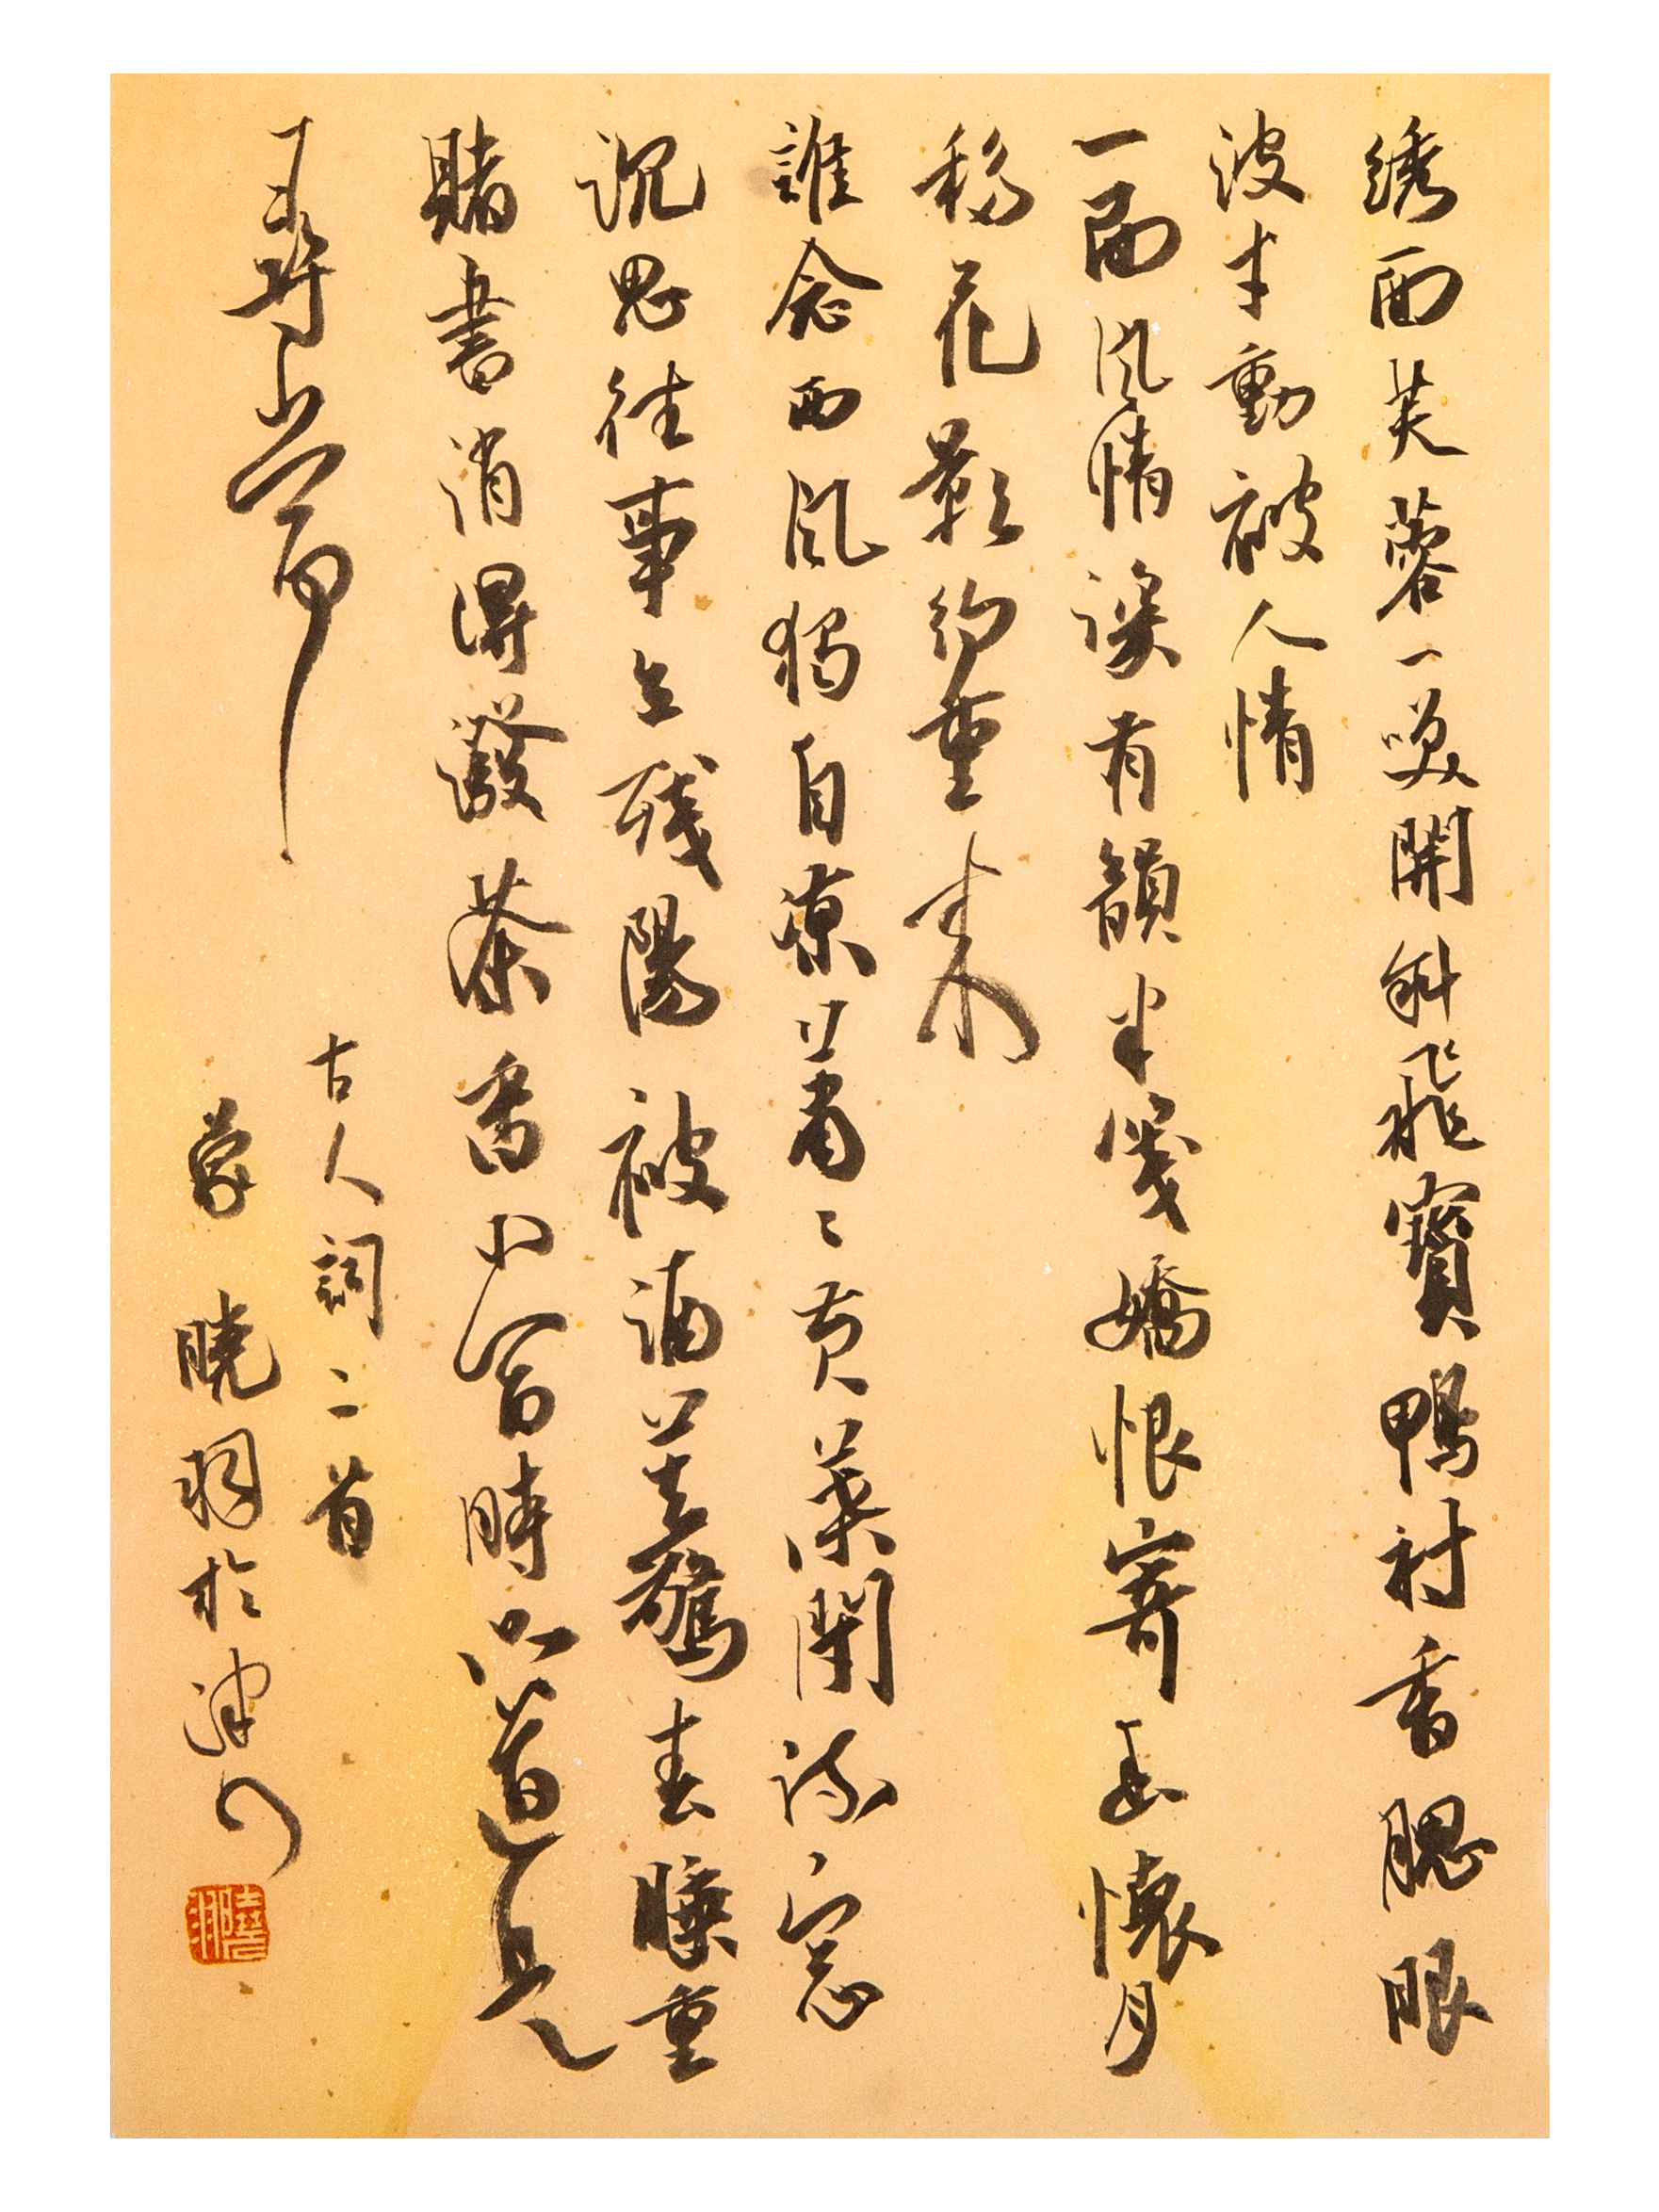 绣面芙蓉一笑開斜飛寶鴨衬香腮眼
波才動被人情
一面风情深有韻半箋嬌恨寄幽懷月
移花影約重来
誰念西风獨自凉蕭〻黄葉閉疏窓
沉思往事立残陽被酒莫驚春睡重
賭書消得潑茶香當時只道是
尋常
古人詞二首
曉羽於津门
曉羽